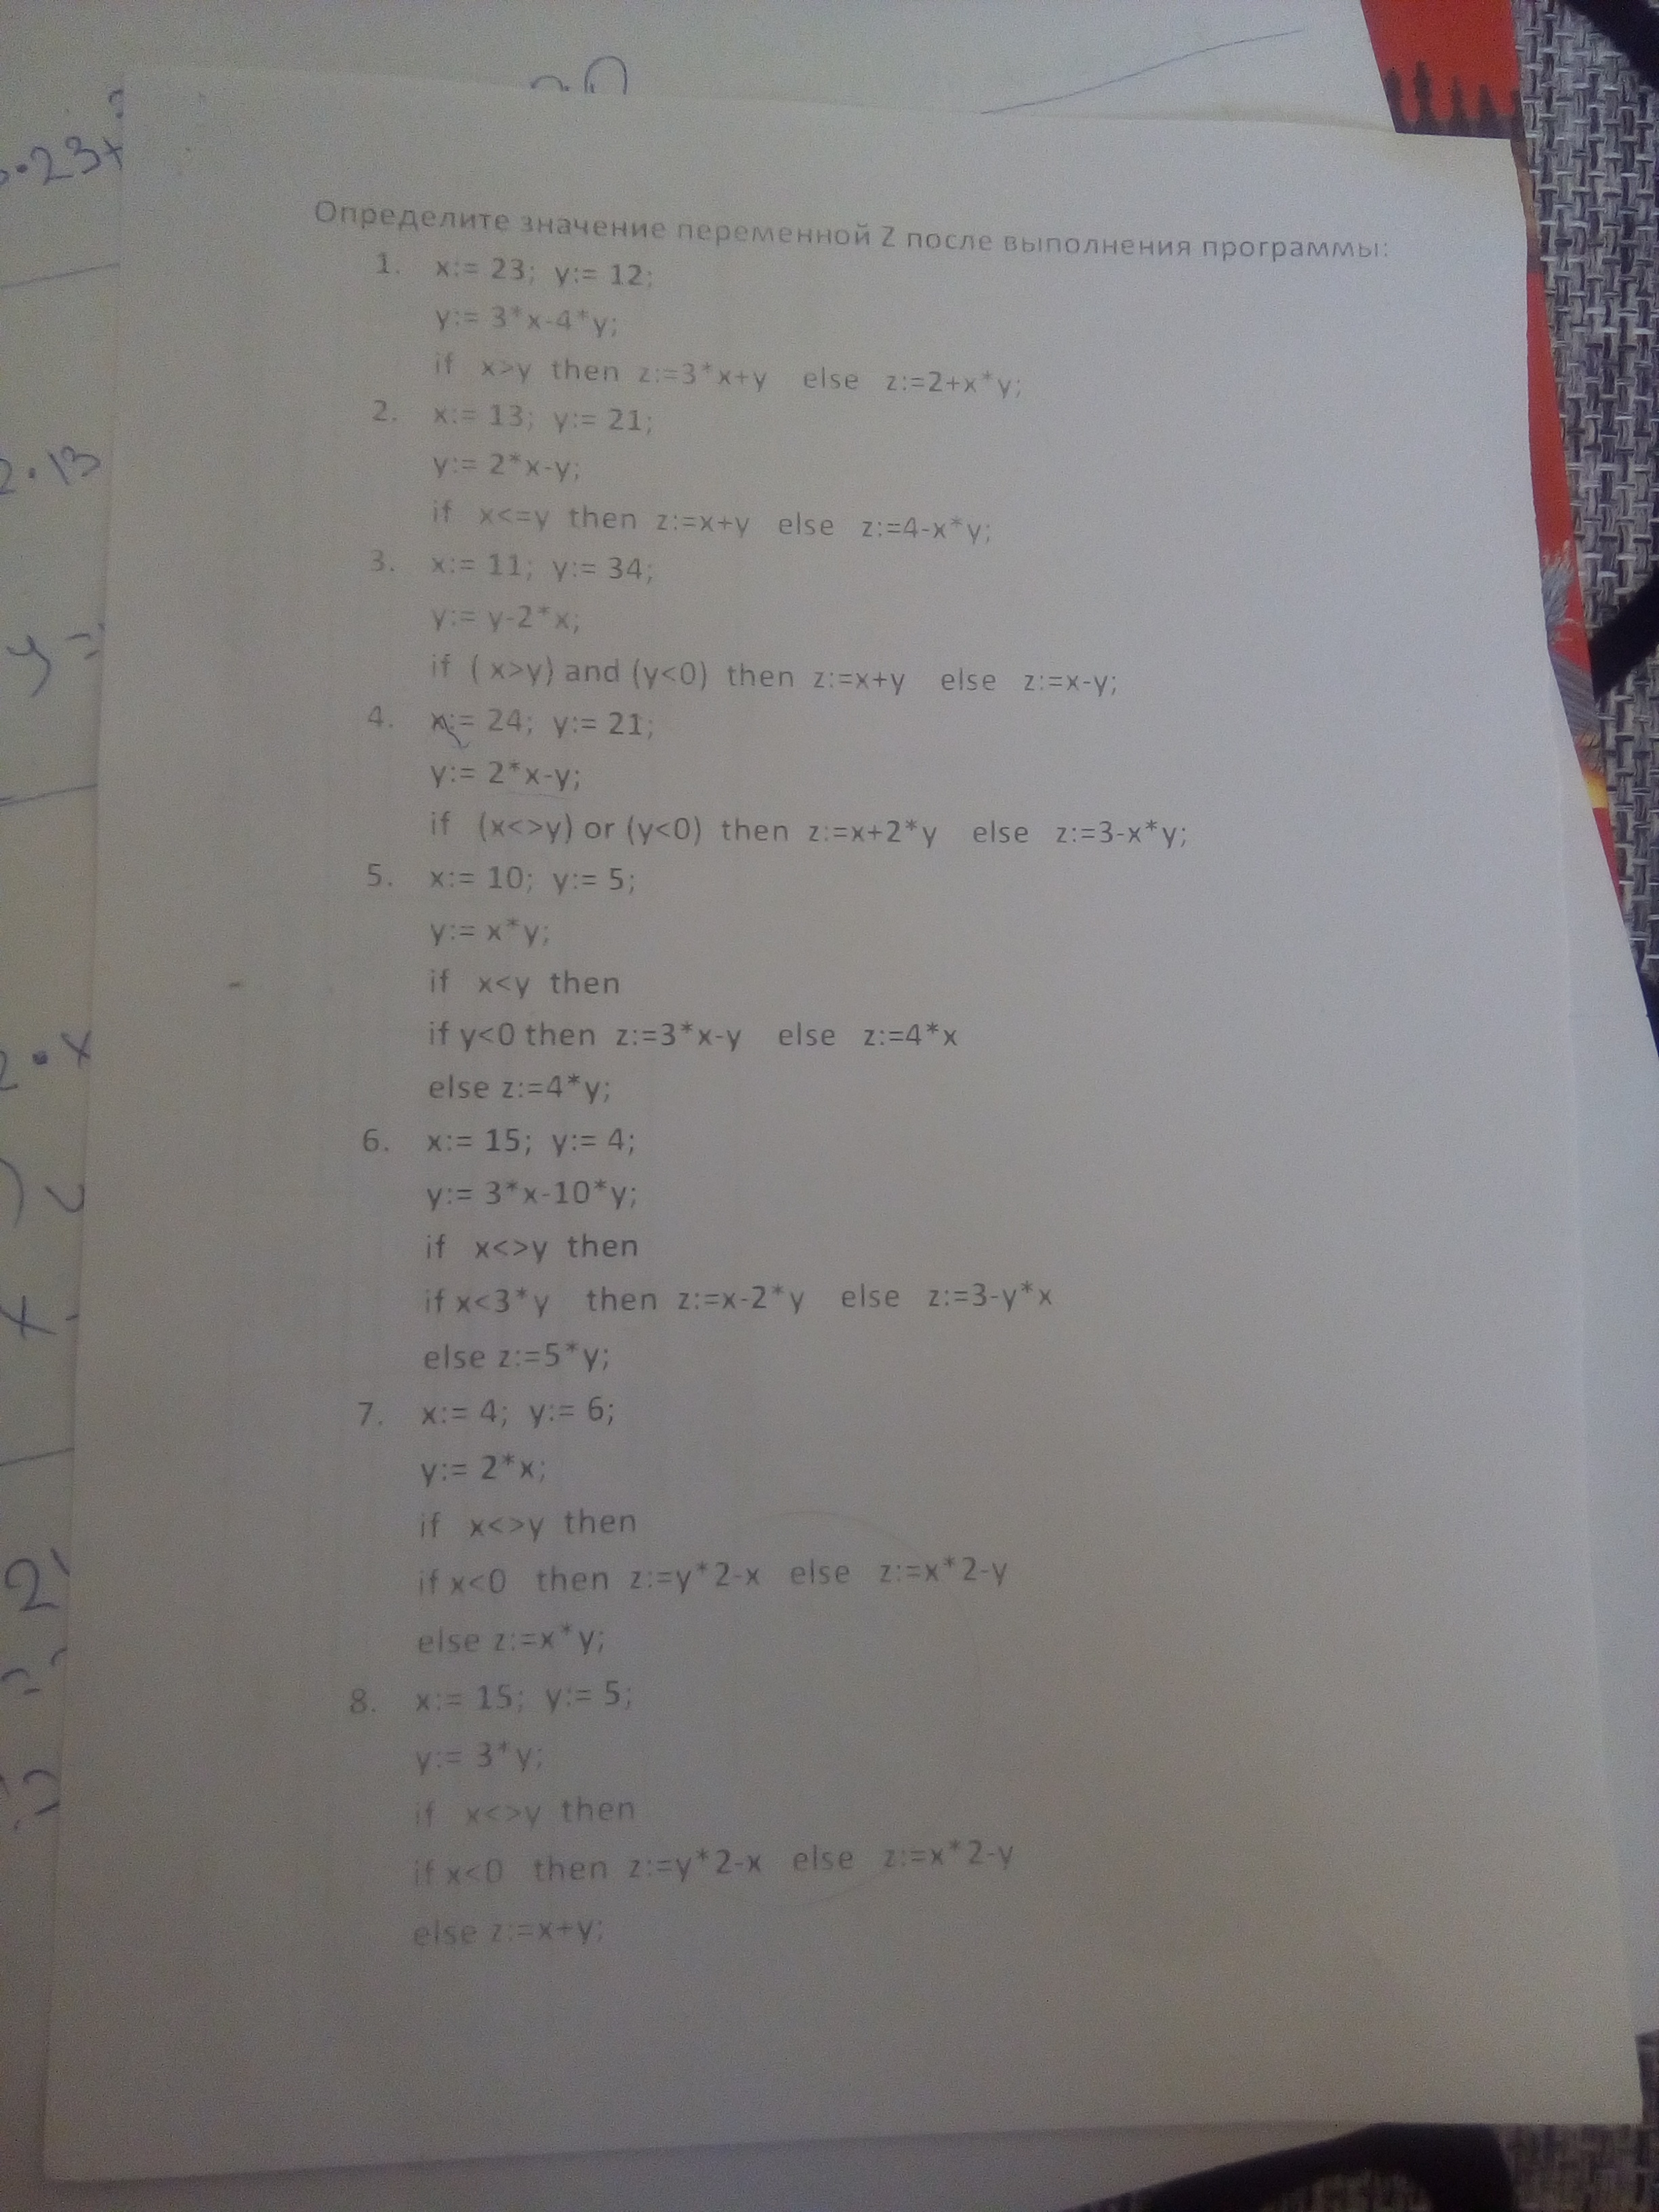 Определите значение переменной Z после выполнения программы:
1. x:= 23; y:= 12;
y:= 3*x-4*y;
if x>y then z:=3*x+y else z:=2+x*y;
2. x:= 13; y:= 21;
y:= 2*x-y;
if x<=y then z:=x+y else z:=4-x*y;
3. x:= 11; y:= 34;
y:= y-2*x;
if ( x>y) and (y<0) then z:=x+y else z:=x-y;
4. x:= 24; y:= 21;
y:= 2*x-y;
if (x<>y) or (y<0) then z:=x+2*y else z:=3-x*y;
5. x:= 10; y:= 5;
y:= x*y;
if x<y then
if y<0 then z:=3*x-y else z:=4*x
else z:=4*y;
6. x:= 15; y:= 4;
y:= 3*x-10*y;
if x<>y then
if x<3*y then z:=x-2*y else z:=3-y*x
else z:=5*y;
7. x:= 4; y:= 6;
y:= 2*x;
if x<>y then
if x<0 then z:=y*2-x else z:=x*2-y
else z:=x*y;
8. x:= 15; y:= 5;
y:= 3*y;
if x<>y then
if x<0 then z:=y*2-x else z:=x*2-y
else z:=x+y;
·23+
2·13
y=
2·x
x-
2